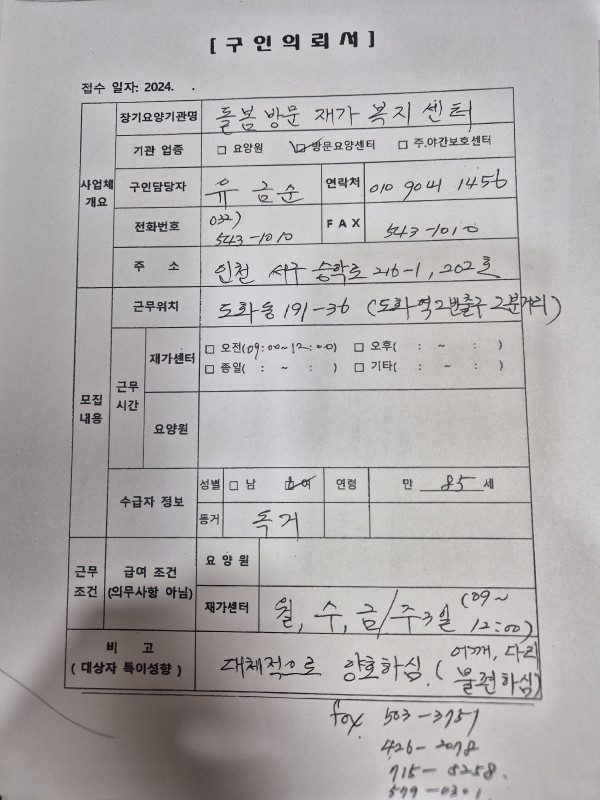 [ 구 인 의 뢰 서 ]
접수 일자: 2024. .
사업체 개요
장기요양기관명 돌봄방문 재가 복지센터
기관 업종 □ 요양원 ☑ 방문요양센터 □ 주.야간보호센터
구인담당자 유 금순 연락처 010 9041 1456
전화번호 032) 543-1010 F A X 543-1010
주 소 인천 서구 승학로 216-1, 202호
모집 내용
근무위치 도화동 191-36 (도화역2번출구 2분거리)
근무 시간
재가센터 □ 오전(09:00~12:00) □ 오후( : ~ : )
□ 종일( : ~ : ) □ 기타( : ~ : )
요양원
수급자 정보 성별 □ 남 ☑ 여 연령 만 85 세
동거 독거
근무 조건
급여 조건 (의무사항 아님)
요 양 원
재가센터 월, 수, 금/주3일 (09~ 12:00)
비 고 ( 대상자 특이성향 )
대체적으로 양호하심. (어깨, 다리 불편하심)
fax 503-3751
426-2078
715-5258.
579-0301